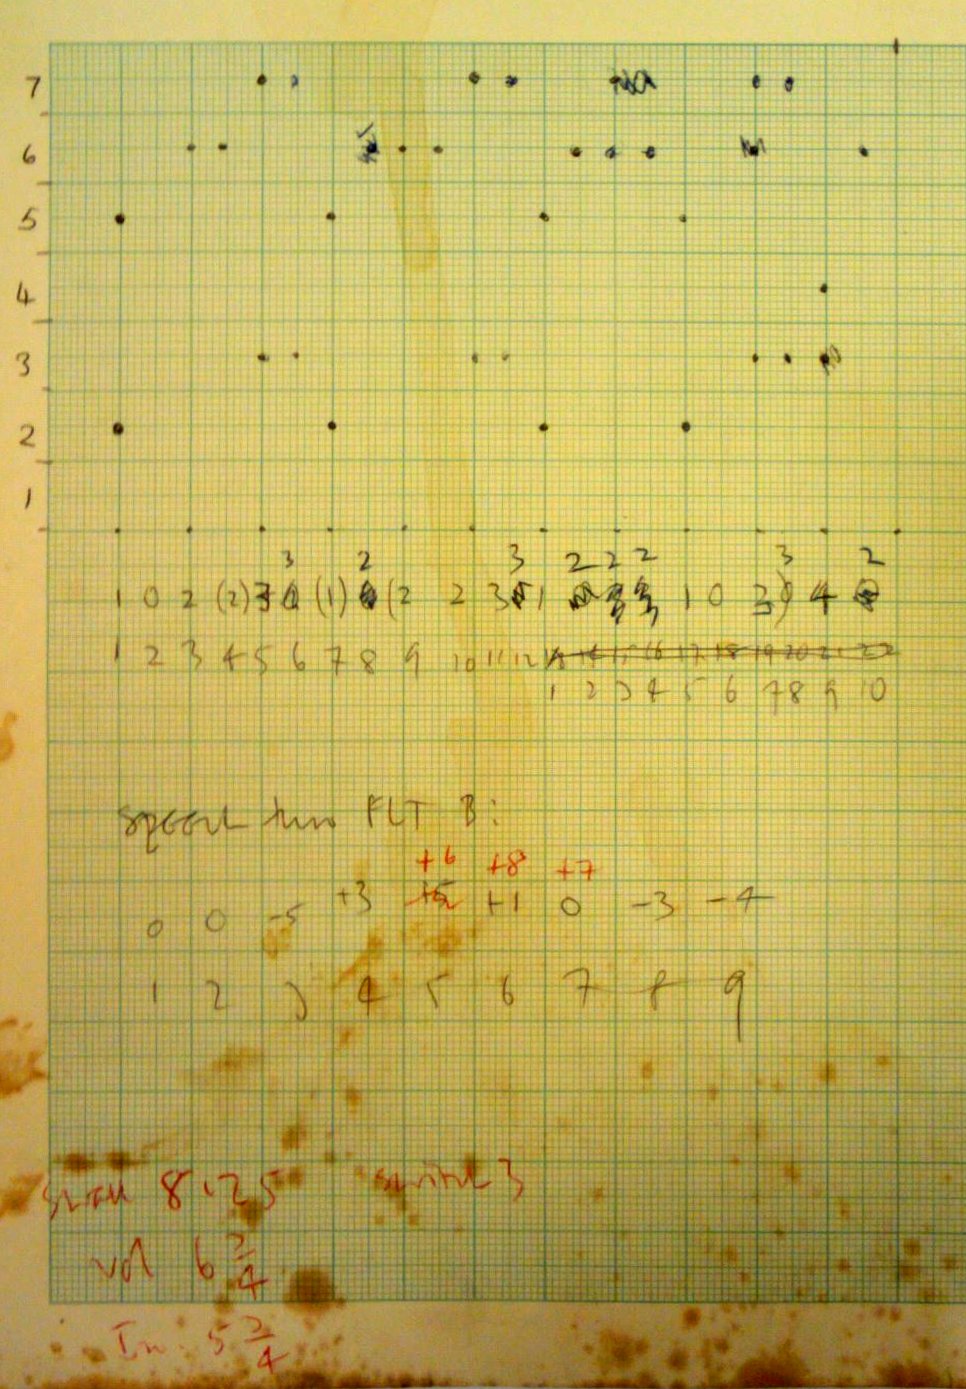 7
6
5
4
3
2
1
3 2 3 2 2 2 3 2
1 0 2 (2) 3 (1) (2 2 3 1 1 0 3 4
1 2 3 4 5 6 7 8 9 10 11 12 13 14 15 16 17 18 19 20 21 22
1 2 3 4 5 6 7 8 9 10
FLT B:
+6 +8 +7
0 0 -5 +3 +5 +1 0 -3 -4
1 2 3 4 5 6 7 8 9
8.25 3
vol 6 3/4
In 5 3/4